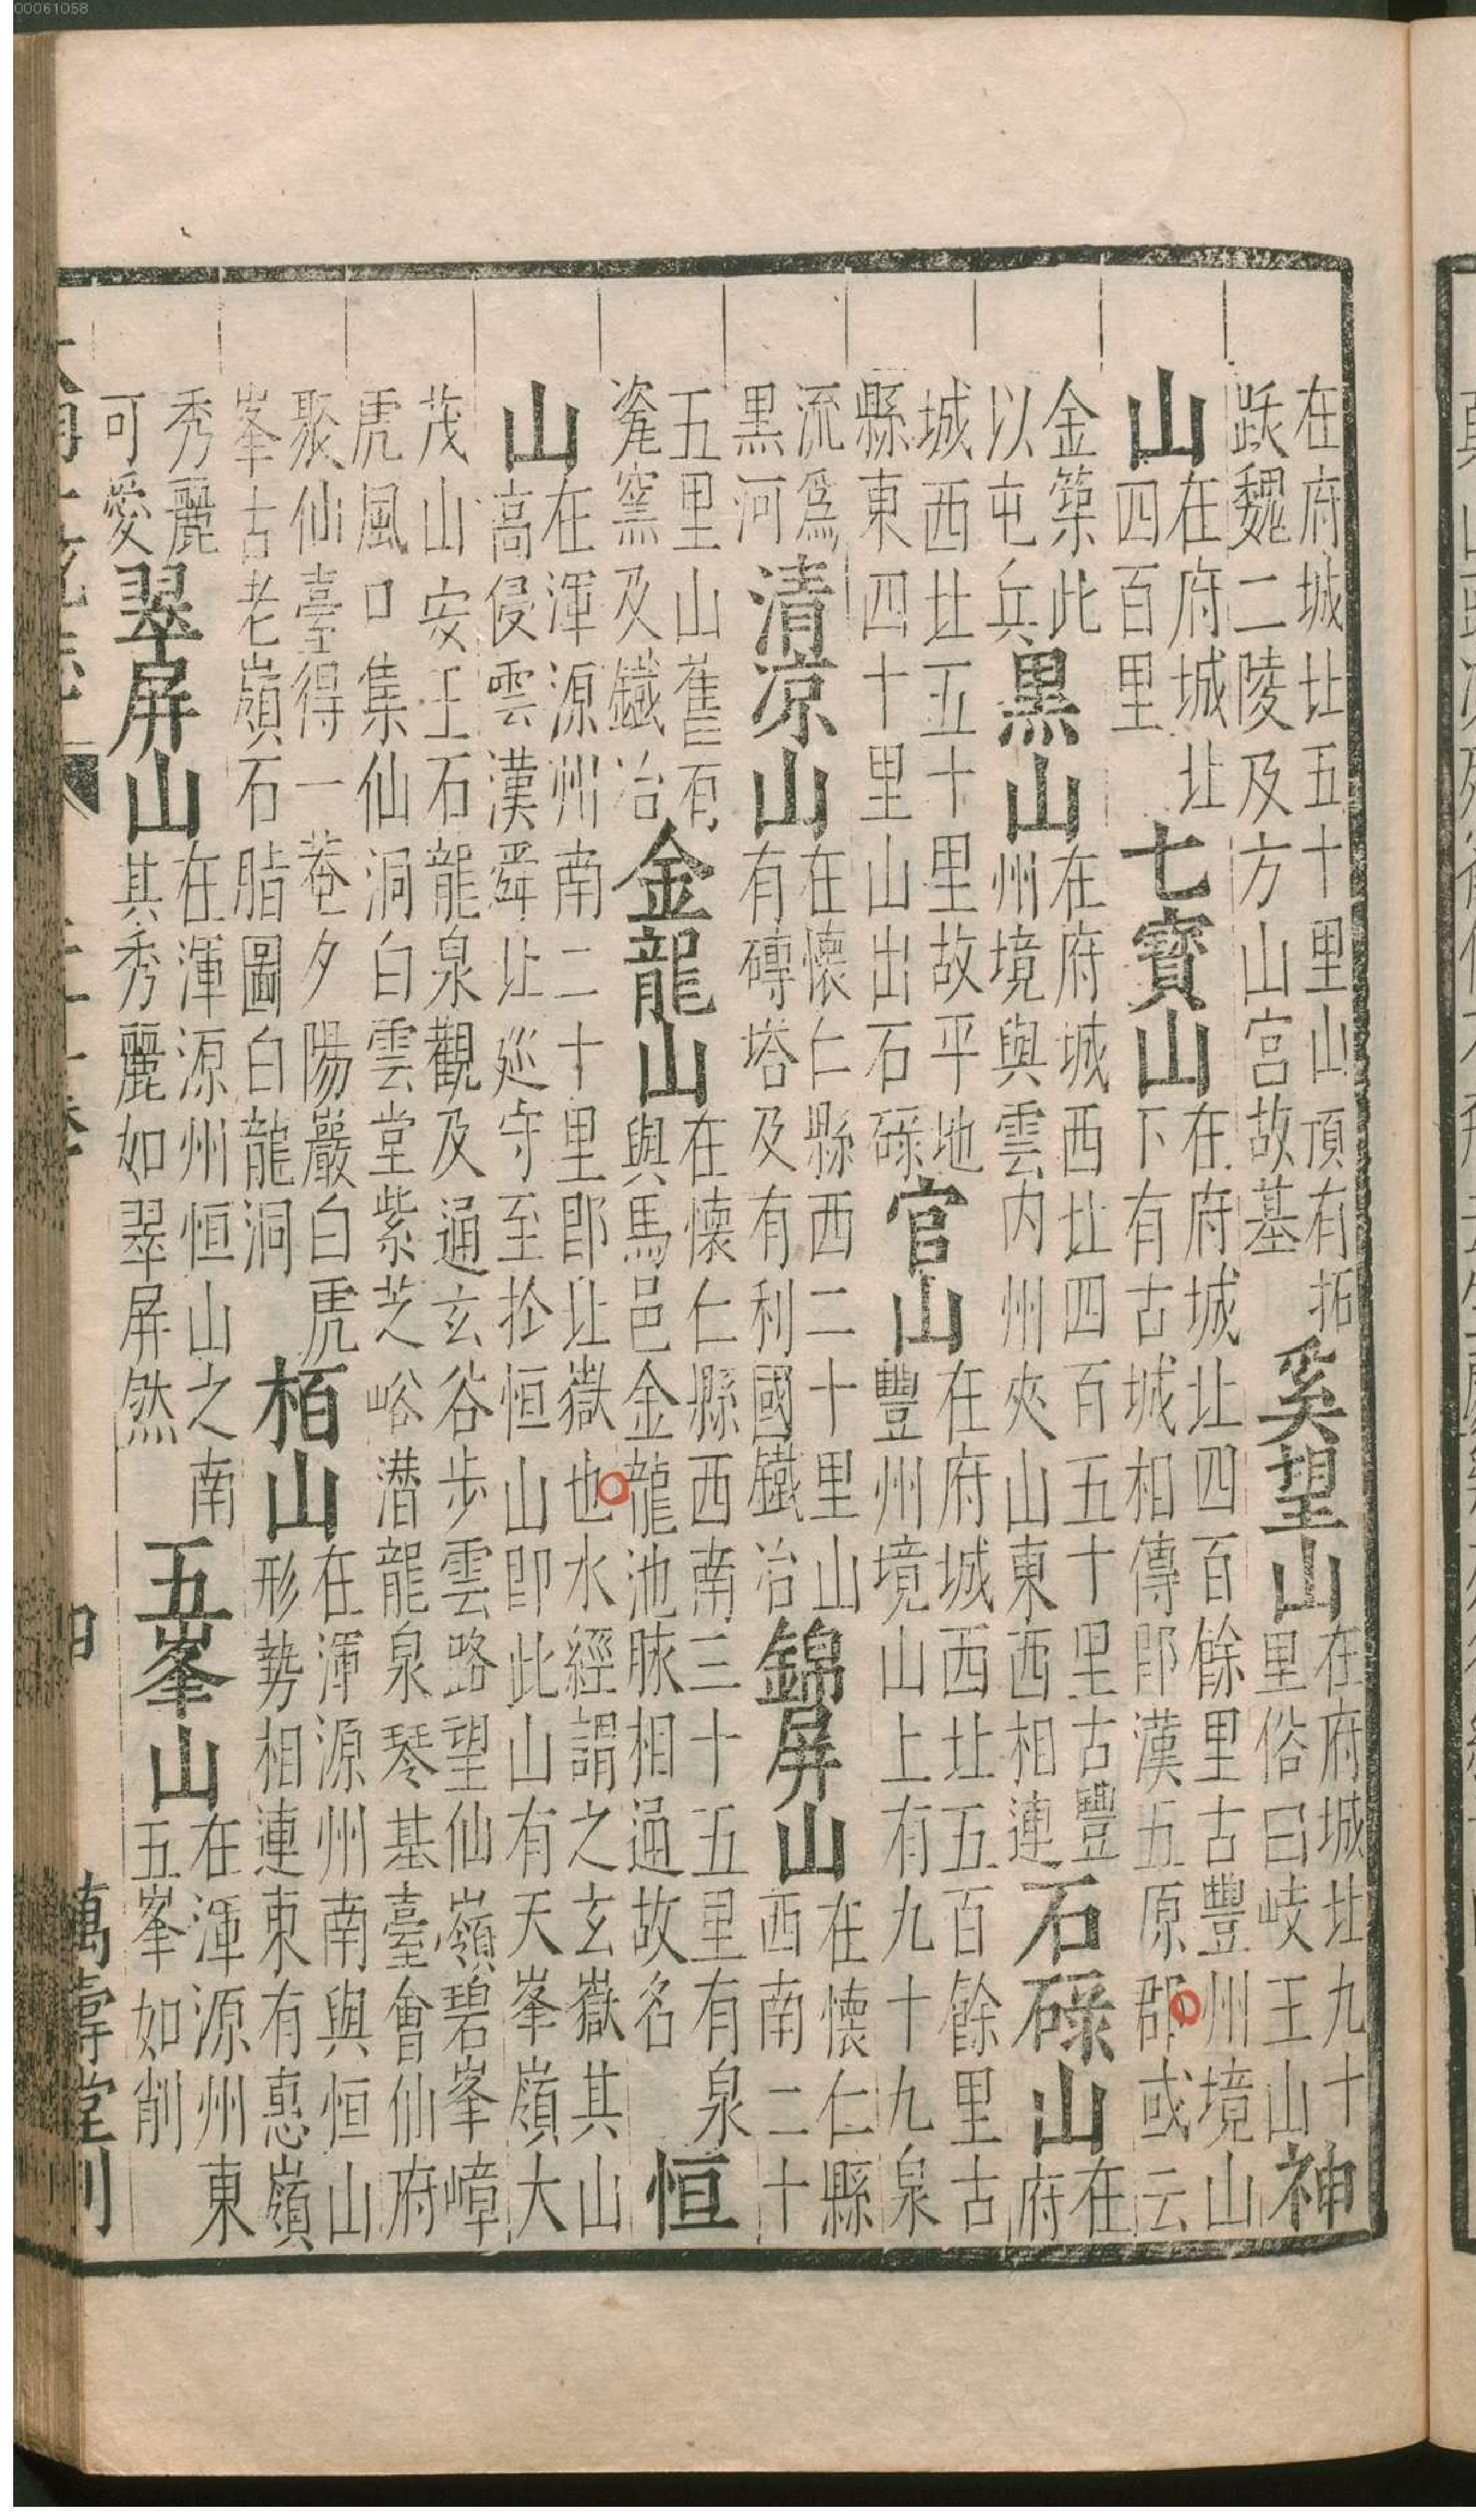 在府城北五十里山頂有拓跋魏二陵及方山宮故墓奚望山在府城北九十里俗曰岐王山神
山在府城北四百里七寶山在府城北四百餘里古豐州境山下有古城相傳即漢五原郡或云
金築此以屯兵黑山在府城西北四百五十里古豐州境與雲内州夾山東西相連石碌山在府
城西北五十里故平地縣東四十里山出石碌官山在府城西北五百餘里古豐州境山上有九十九泉
流爲黑河清凉山在懷仁縣西二十里山有磚塔及有利國鐵冶錦屏山在懷仁縣西南二十
五里山舊有瓷窯及鐵冶金龍山在懷仁縣西南三十五里有泉與馬邑金龍池脉相通故名恒
山在渾源州南二十里即北嶽也水經謂之玄嶽其山高侵雲漢舜北巡守至於恒山即此山有天峯嶺大
茂山安王石龍泉觀及通玄谷步雲路望仙嶺碧峯嶂虎風口集仙洞白雲堂紫芝峪潛龍泉琴基臺會仙府
聚仙臺得一菴夕陽巖白虎峯古老嶺石脂圖白龍洞栢山在渾源州南與恒山形勢相連東有悳嶺
秀麗可愛翠屏山在渾源州恒山之南其秀麗如翠屏然五峯山在渾源州東五峯如削
萬壽堂刊
00061058